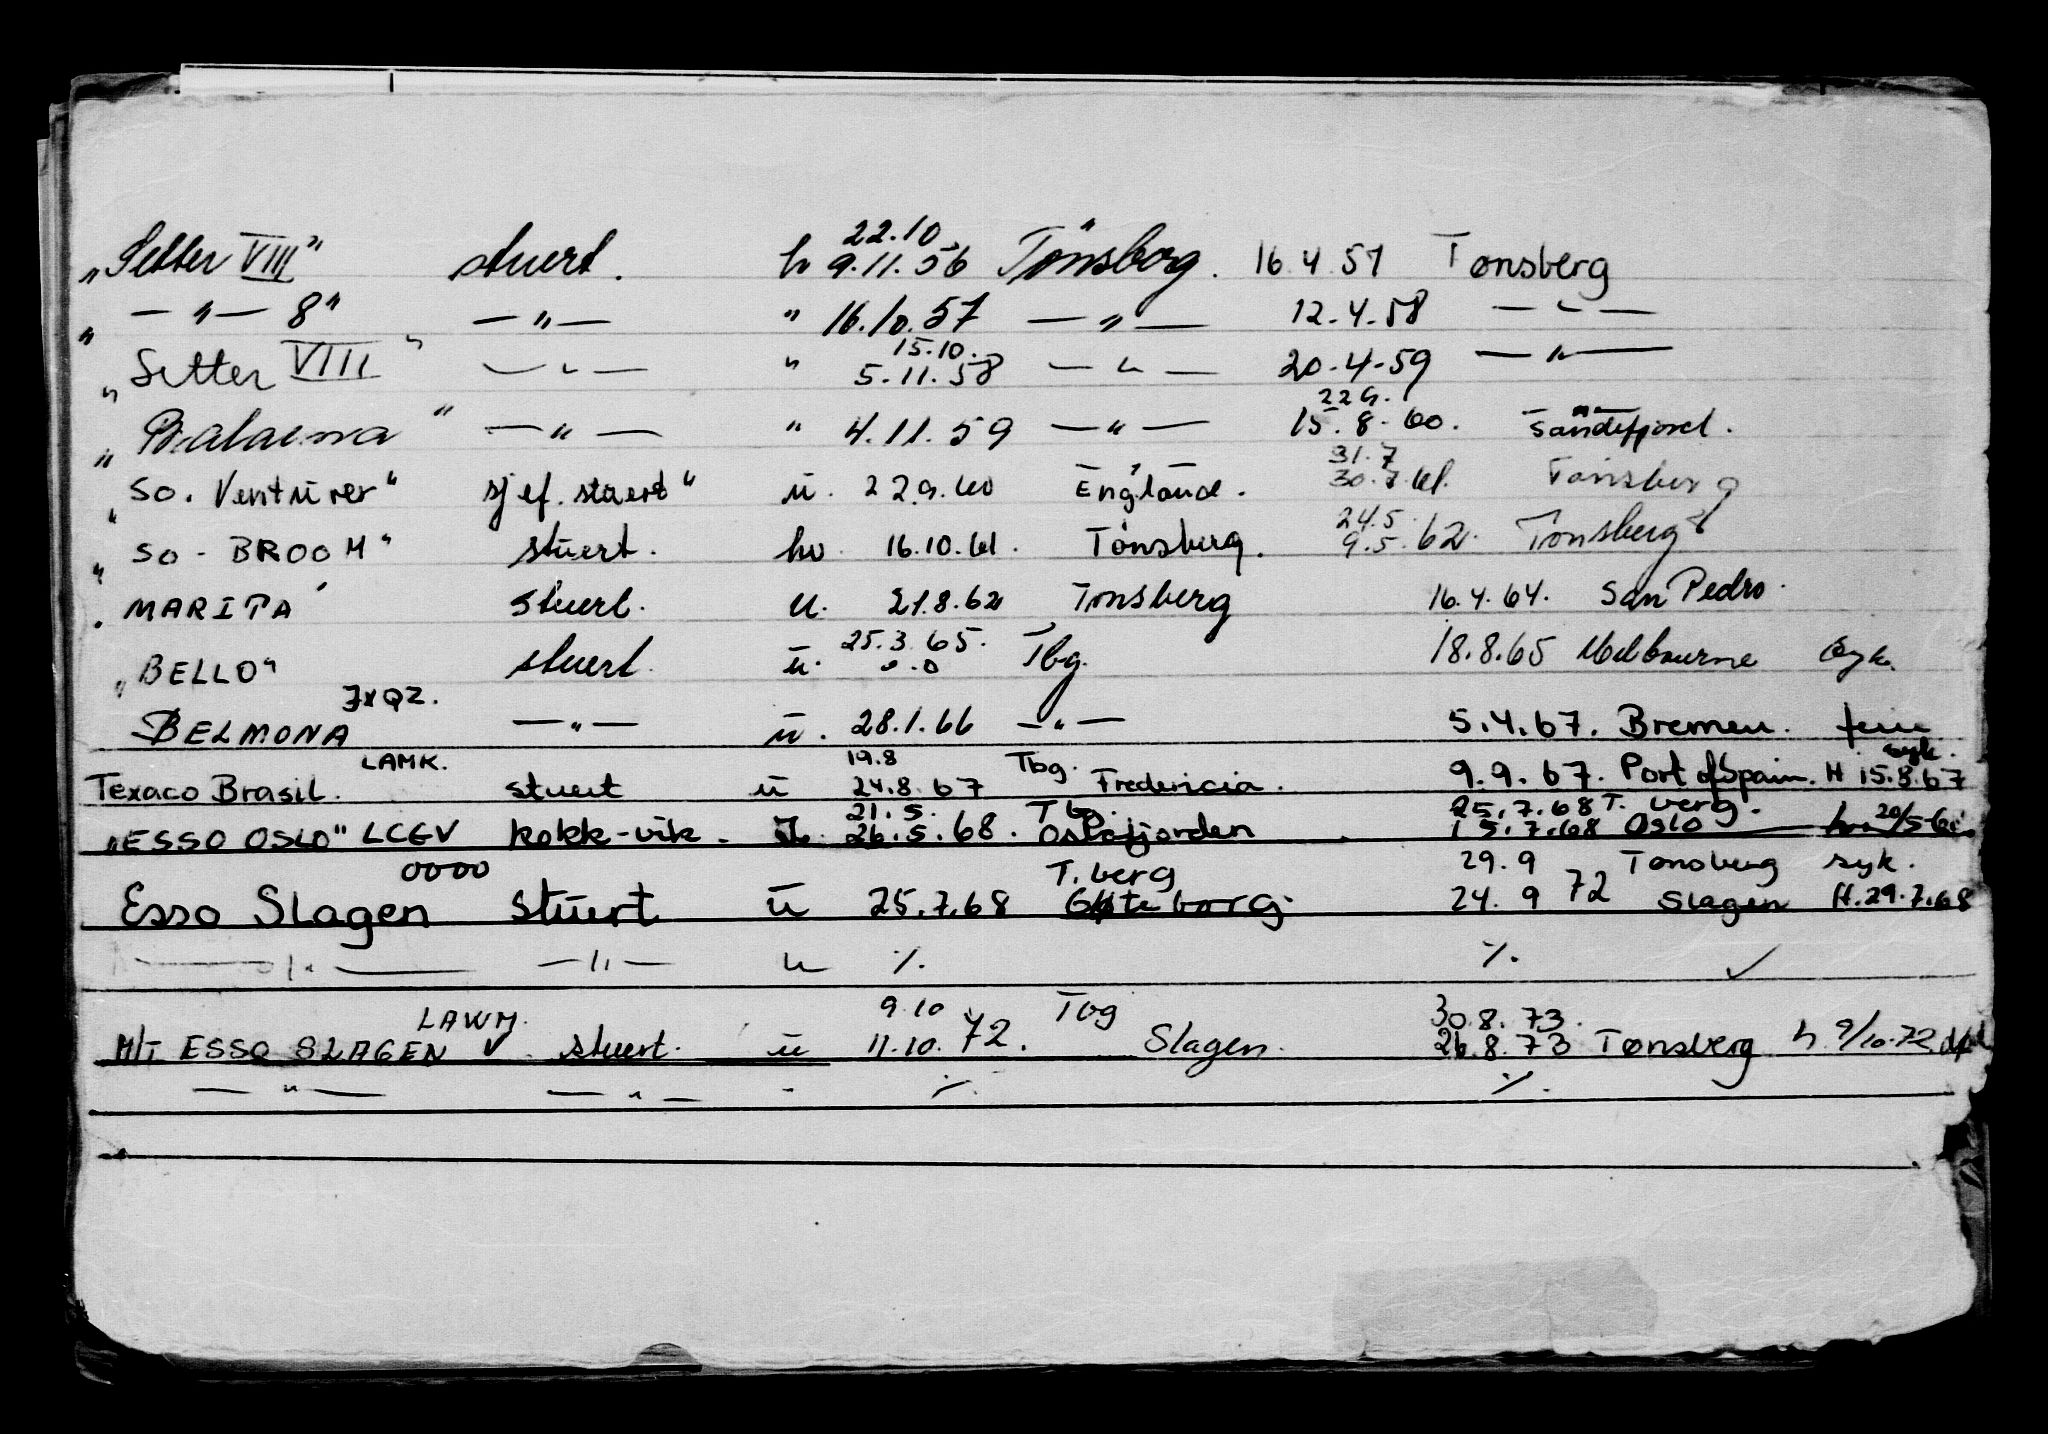 22.10
„Setter VIII" stuert. hv 9.11.56 Tönsberg. 16.4.57 Tønsberg
„ — „ — 8" — „ — " 16.10.57 — „ — 12.4.58 — „ —
15.10.
„Setter VIII" — „ — " 5.11.58 — „ — 20.4.59 — „ —
22.9.
„Balaena" — „ — " 4.11.59 — „ — 15.8.60. Sandefjord.
31.7
„So. Venturer" sjef. stuert" u. 22.9.60 England. 30.7.61. Tønsberg
24.5.
„SO-BROOM" stuert. hv. 16.10.61. Tønsberg. 9.5.62. Tønsberg
„MARITA" stuert. u. 21.8.62 Tønsberg 16.4.64. San Pedro.
25.3.65.
„BELLO" stuert. u. Tbg. 18.8.65 Melbourne syk.
JXQZ.
BELMONA — „ — u. 28.1.66 — „ — 5.4.67. Bremen.
LAMK. 19.8 Tbg. syk.
Texaco Brasil. stuert u 24.8.67 Fredericia. 9.9.67. Port of Spain. H 15.8.67
21.5. Tbg. 25.7.68 T. berg.
„ESSO OSLO" LCGV kokk-vik. 26.5.68. Oslofjorden 15.7.68 Oslo
OOOO T. berg 29.9 Tønsberg syk.
Esso Slagen stuert u 25.7.68 Gøteborg. 24.9 72 Slagen H. 29.7.68
— „ — — „ — u %. %. ✓
LAWM. 9.10 Tbg 30.8.73.
M/T ESSO SLAGEN ✓ stuert. u 11.10.72. Slagen. 26.8.73 Tønsberg h. 9/10.72.
— „ — — „ — " %. %.